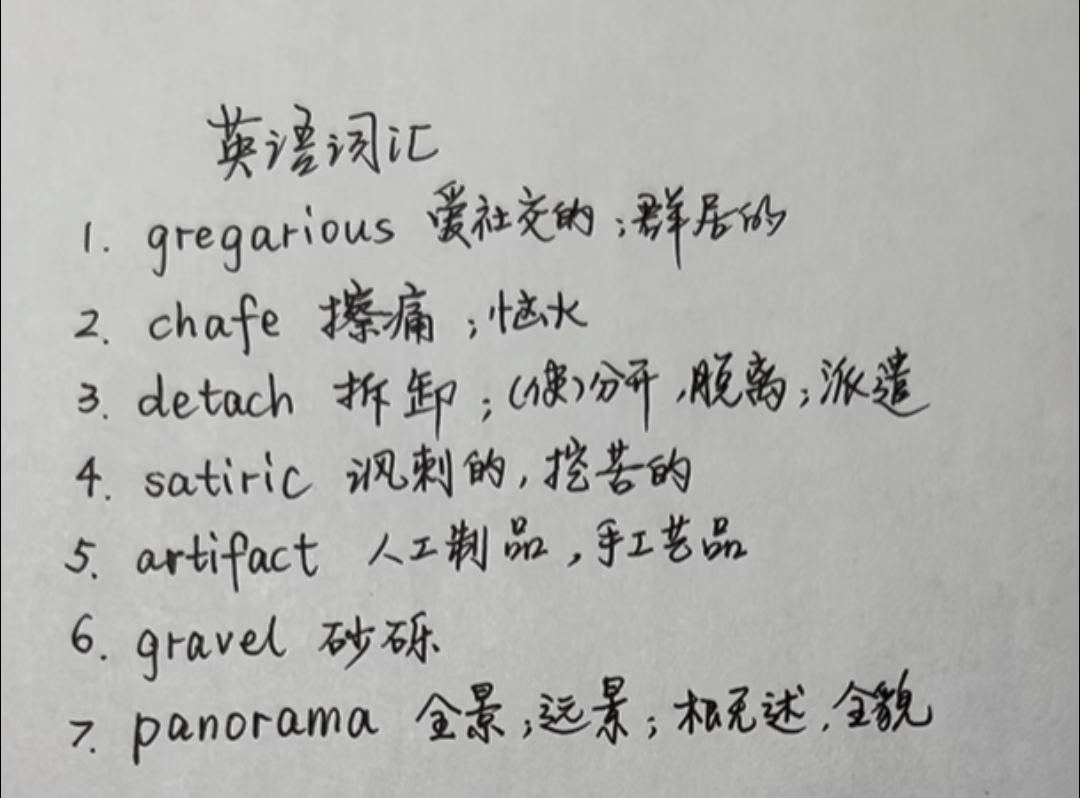 英语词汇
1. gregarious 爱社交的；群居的
2. chafe 擦痛；恼火
3. detach 拆卸；(使)分开，脱离；派遣
4. satiric 讽刺的，挖苦的
5. artifact 人工制品，手工艺品
6. gravel 砂砾
7. panorama 全景；远景；概述，全貌